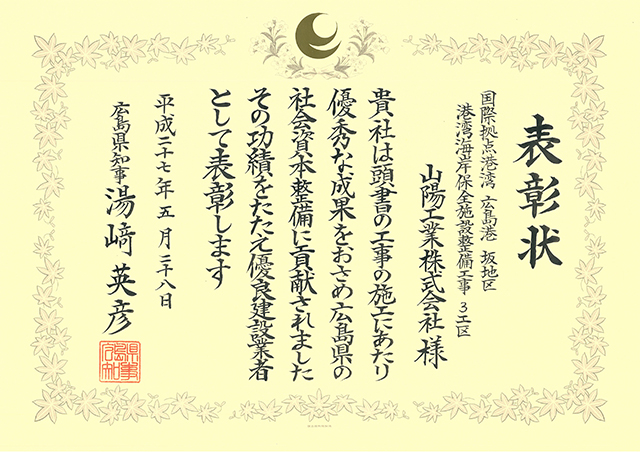 表彰状
国際拠点港湾 広島港 坂地区
港湾海岸保全施設整備工事 3工区
山陽工業株式会社 様
貴社は頭書の工事の施工にあたり
優秀な成果をおさめ広島県の
社会資本整備に貢献されました
その功績をたたえ優良建設業者
として表彰します
平成二十七年五月二十八日
広島県知事 湯﨑英彦